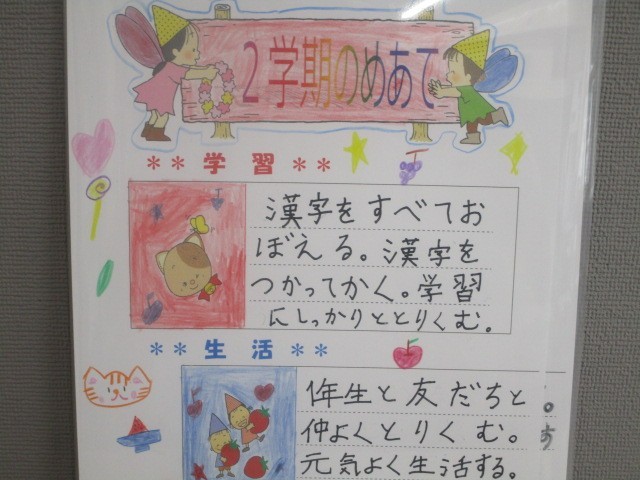 2学期のめあて
**学習**
漢字をすべてお
ぼえる。漢字を
つかってかく。学習
にしっかりととりくむ。
**生活**
1年生と友だちと
仲よくとりくむ。
元気よく生活する。